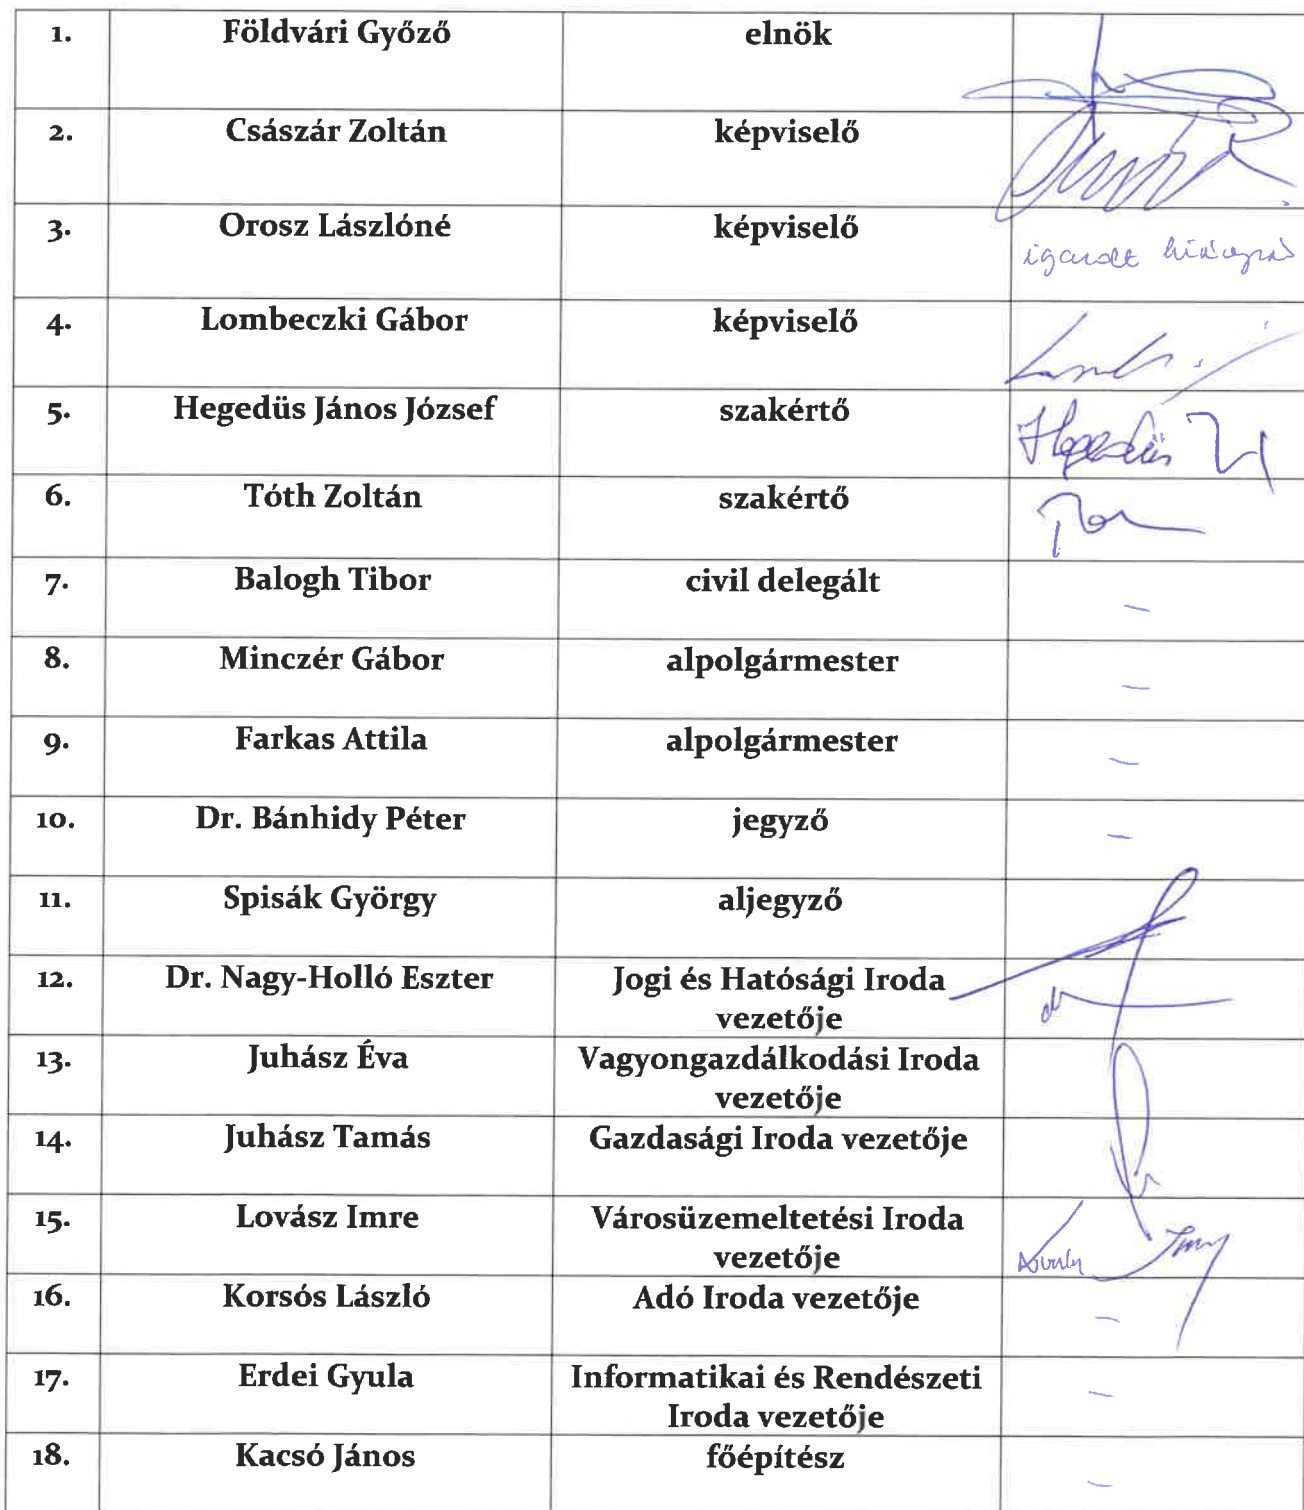 1. Földvári Győző elnök
2. Császár Zoltán képviselő
3. Orosz Lászlóné képviselő
igazolt hiányzás
4. Lombeczki Gábor képviselő
5. Hegedüs János József szakértő
Hegedüs
6. Tóth Zoltán szakértő
7. Balogh Tibor civil delegált –
8. Minczér Gábor alpolgármester –
9. Farkas Attila alpolgármester –
10. Dr. Bánhidy Péter jegyző –
11. Spisák György aljegyző
12. Dr. Nagy-Holló Eszter Jogi és Hatósági Iroda
vezetője
13. Juhász Éva Vagyongazdálkodási Iroda
vezetője
14. Juhász Tamás Gazdasági Iroda vezetője
15. Lovász Imre Városüzemeltetési Iroda
vezetője
16. Korsós László Adó Iroda vezetője –
17. Erdei Gyula Informatikai és Rendészeti –
Iroda vezetője
18. Kacsó János főépítész –